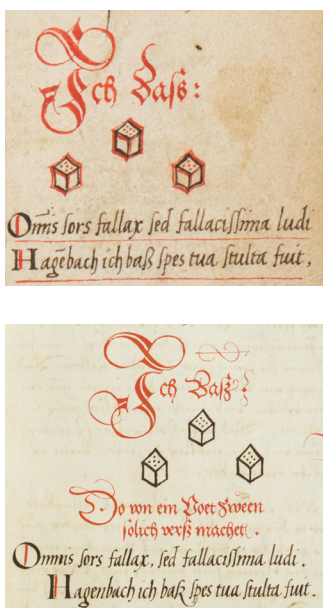 Ich Bass:
Om̄is sors fallax sed fallacissima ludi
Hagēbach ich baß spes tua stulta fuit,
Ich Baß:
Do von ein Poet Zween
sölich verß machet.
Omnis sors fallax, sed fallacissima ludi.
Hagenbach ich baß spes tua stulta fuit.